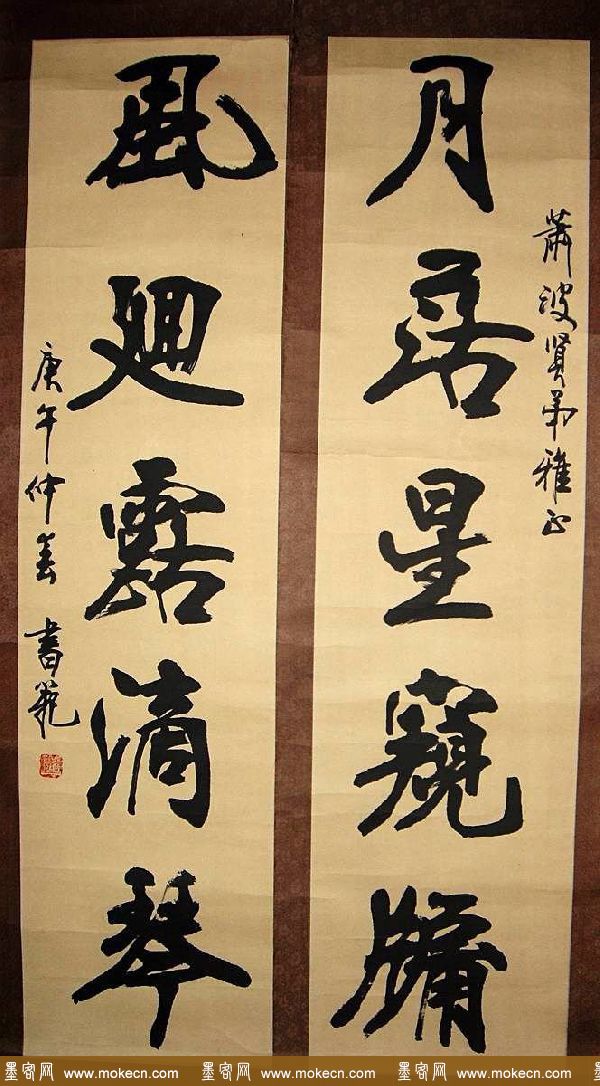 萧波贤弟雅正
月落星窥牖
風廻露滴琴
庚午仲春 書範
墨客网 www.mokecn.com 墨客网 www.mokecn.com 墨客网 www.mokecn.com